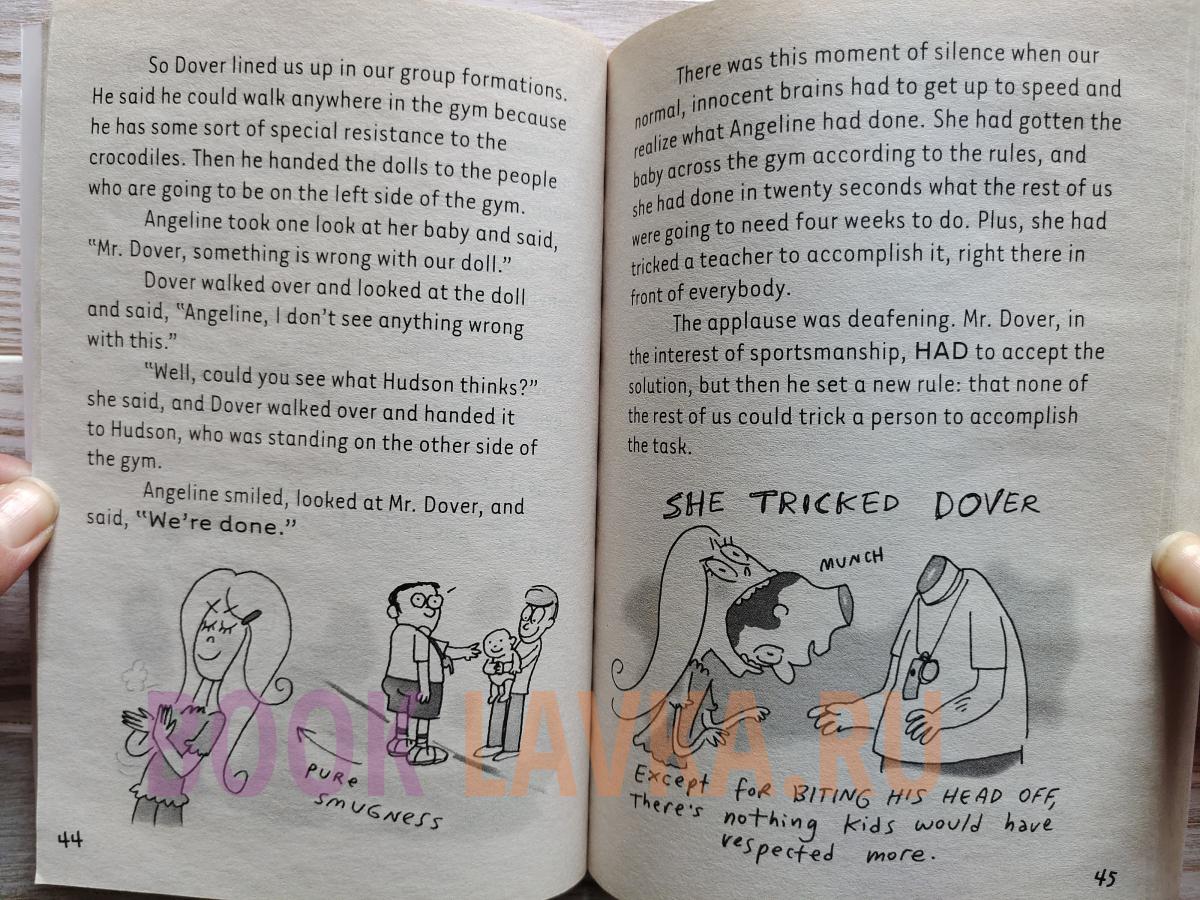 So Dover lined us up in our group formations.
He said he could walk anywhere in the gym because
he has some sort of special resistance to the
crocodiles. Then he handed the dolls to the people
who are going to be on the left side of the gym.
Angeline took one look at her baby and said,
“Mr. Dover, something is wrong with our doll.”
Dover walked over and looked at the doll
and said, “Angeline, I don’t see anything wrong
with this.”
“Well, could you see what Hudson thinks?”
she said, and Dover walked over and handed it
to Hudson, who was standing on the other side of
the gym.
Angeline smiled, looked at Mr. Dover, and
said, “We’re done.”
PURE
SMUGNESS
44
There was this moment of silence when our
normal, innocent brains had to get up to speed and
realize what Angeline had done. She had gotten the
baby across the gym according to the rules, and
she had done in twenty seconds what the rest of us
were going to need four weeks to do. Plus, she had
tricked a teacher to accomplish it, right there in
front of everybody.
The applause was deafening. Mr. Dover, in
the interest of sportsmanship, HAD to accept the
solution, but then he set a new rule: that none of
the rest of us could trick a person to accomplish
the task.
SHE TRICKED DOVER
MUNCH
Except for BITING HIS HEAD OFF,
There's nothing kids would have
respected more.
45
BOOK LAVKA.RU